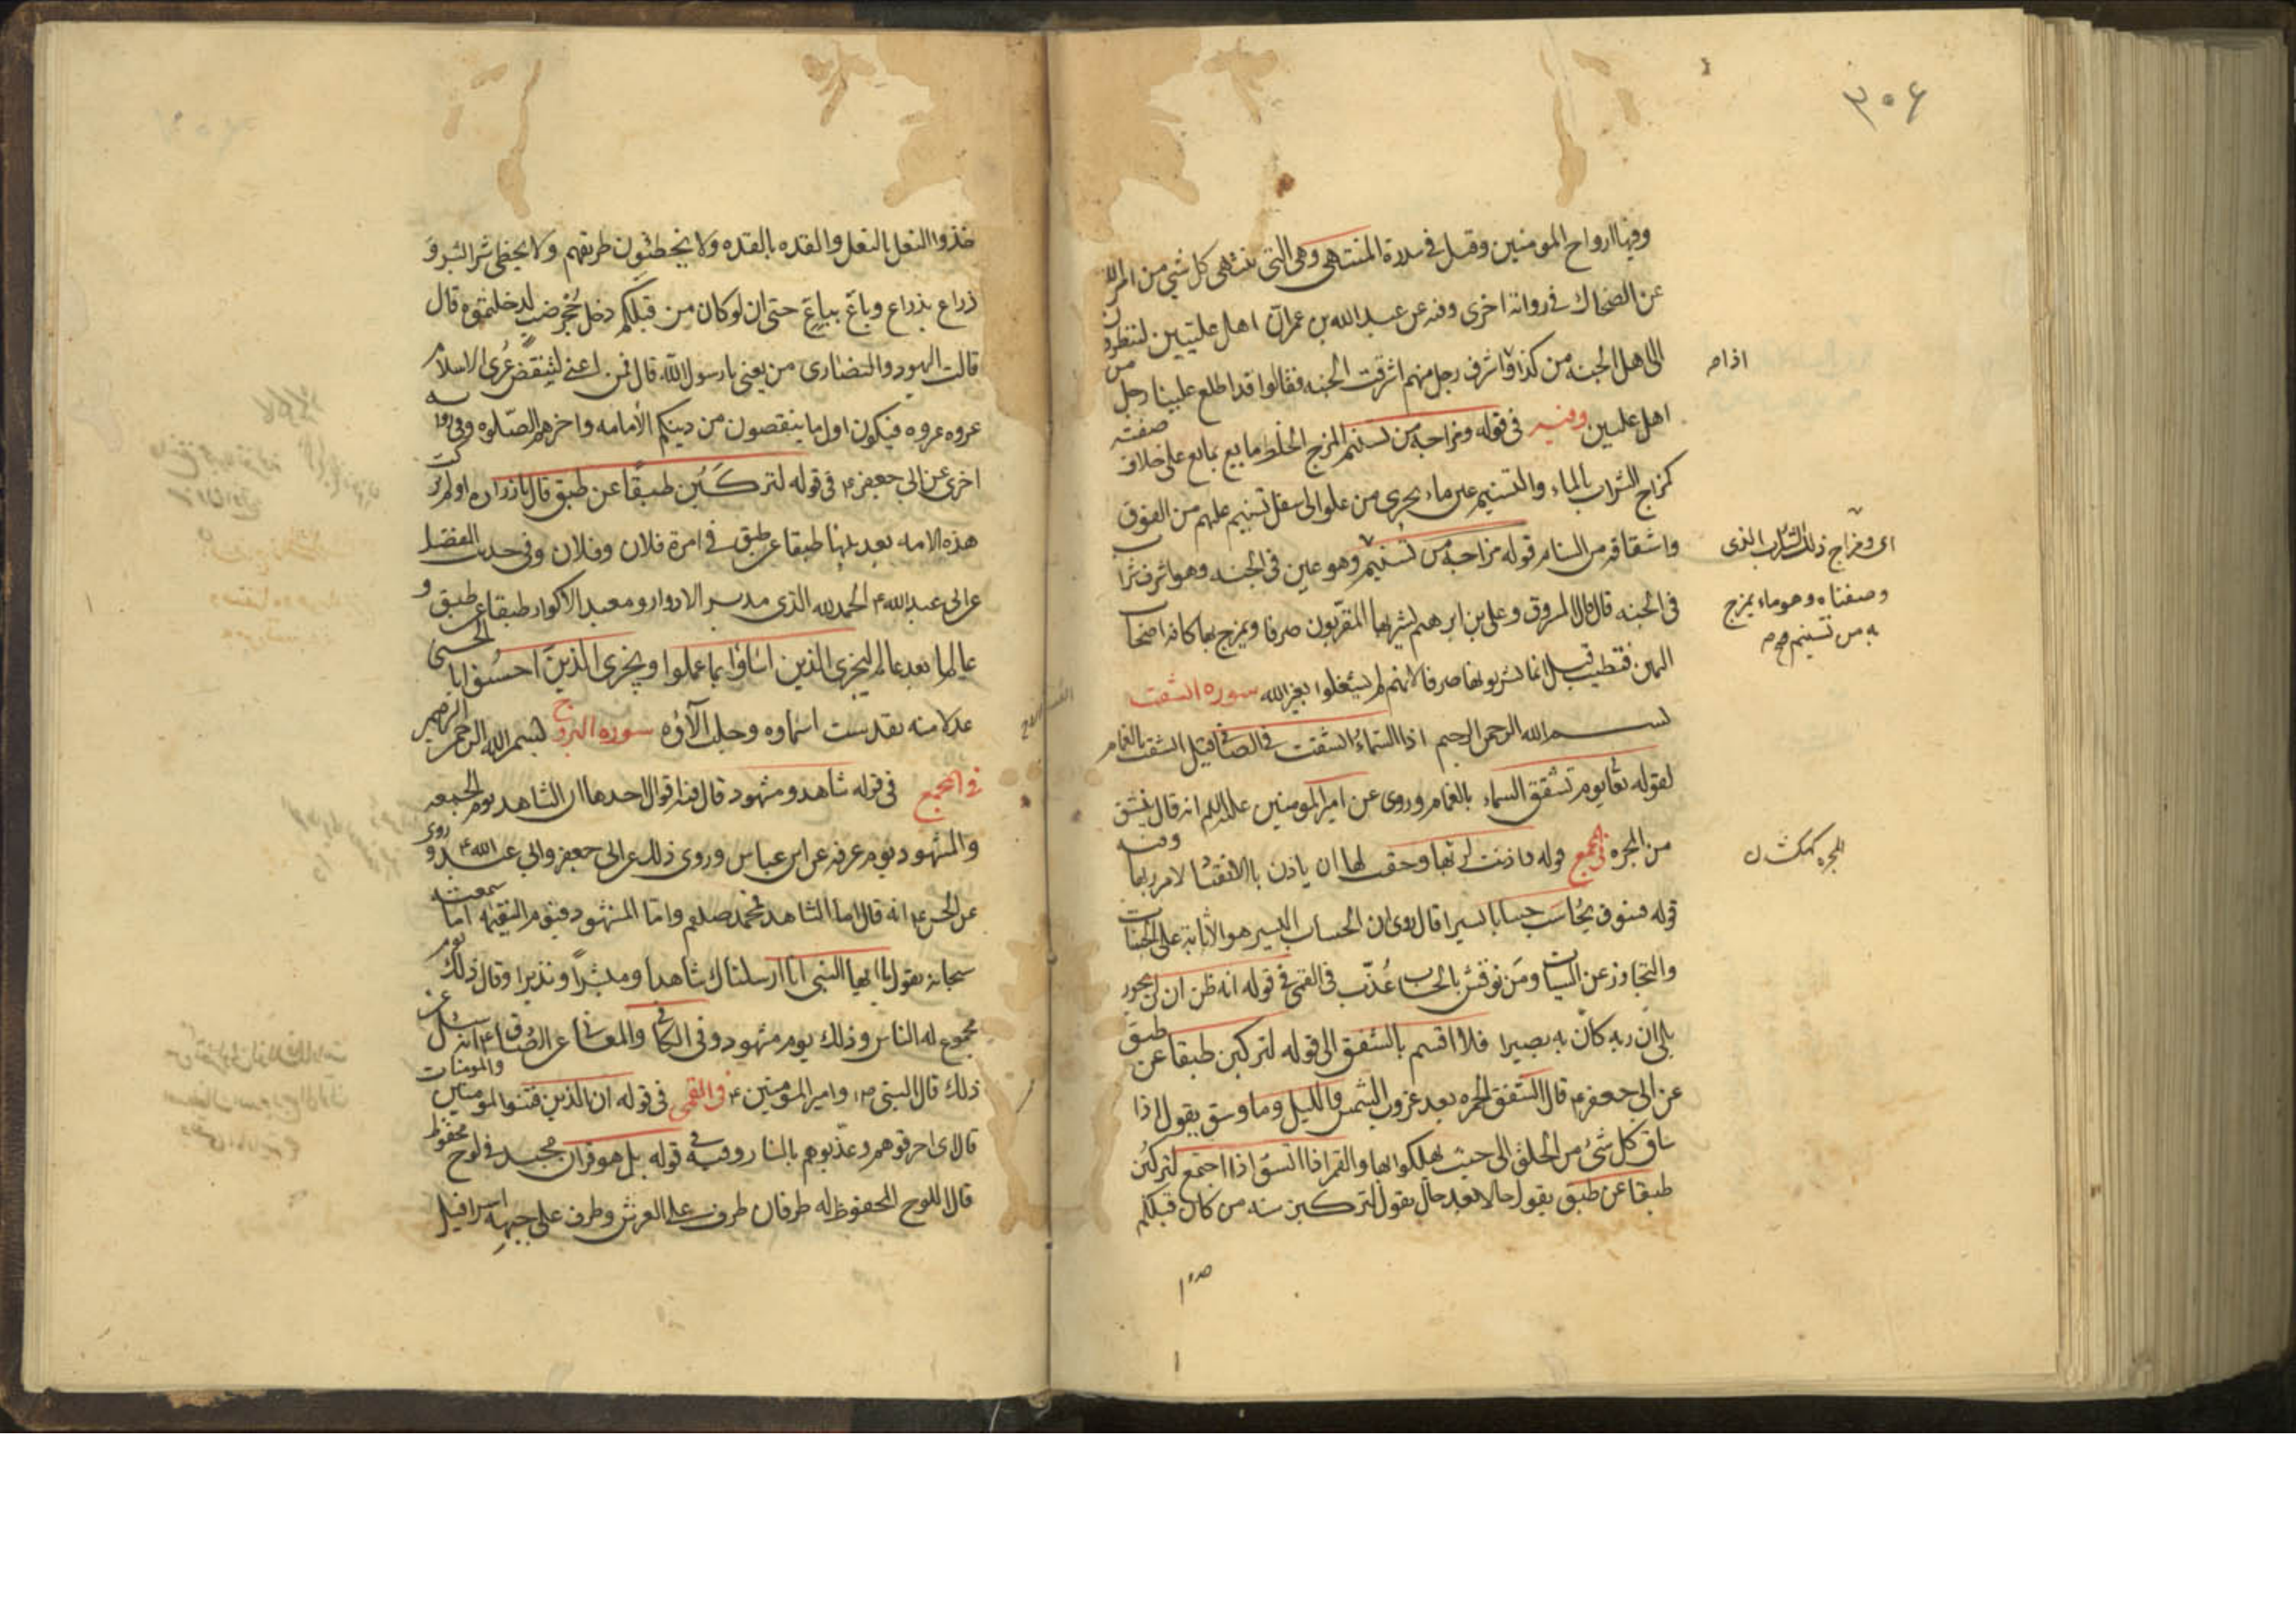 ۳۰۶
وفيها ارواح المومنين وقيل في سدرة المنتهى وهي التى ينتهى كل شي من امر الله
عن الضحاك في رواية اخرى وفيه عن عبد الله بن عمر ان اهل عليين لينظرون
الى اهل الجنه من كذا فاذا اشرف رجل منهم اشرقت الجنه فقالوا قد اطلع علينا رجل من
اهل عليين وفيه في قوله ومزاجه من تسنيم المزج الخلط مايع بمايع على خلاف صفته
كمزاج الشراب بالماء والتسنيم عين ماء يجرى من علو الى اسفل تسنيم عليهم من الفوق
واشتقاقه من السنام قوله مزاجه من تسنيم وهو عين في الجنه وهو اشرف شراب
في الجنه قال مسروق وعلى بن ابرهيم يشربها المقربون صرفا ويمزج بها كاس اصحاب
اليمين فتطيب قيل انما يشربونها صرفا لانهم لم يشغلوا بغير الله سوره انشقت
بسم الله الرحمن الرحيم اذا السماء انشقت في الصافى قيل انشقت بالغمام
لقوله تعا يوم تشقق السماء بالغمام وروى عن امير المومنين عليه السلم انه قال تنشق
من المجره في المجمع قوله واذنت لربها وحقت لها ان ياذن بالانقياد لامر ربها وفيه
قوله فسوف يحاسب حسابا يسيرا قال روى ان الحساب اليسير هو الاثابة على الحسنات
والتجاوز عن السيات ومن نوقش بالحساب عُذّب في القمى في قوله انه ظن ان لن يحور
بلى ان ربه كان به بصيرا فلا اقسم بالشفق الى قوله لتركبن طبقا عن طبق
عن ابى جعفر ع قال الشفق الحمره بعد غروب الشمس والليل وما وسق يقول اذا
ساق كل شئ من الخلق الى حيث يهلكوا بها والقمر اذا اتسق اذا اجتمع لتركبن
طبقا عن طبق يقول حالا بعد حال يقول لتركبن سنه من كان قبلكم
اذا
اى ومزاج ذلك الشراب الذى
وصفناه وهو ماء يمزج
به من تسنيم
المجره كهكشان
حذوا النعل بالنعل والقذه بالقذه ولا يخطئون طريقهم ولا يخطى شبر الشبر و
ذراع بذراع وباع بباع حتى ان لو كان من قبلكم دخل جحر ضب لدخلتموه قال
قالت اليهود والنصارى من يعنى يا رسول الله قال فمن اعنى لينقض عُرى الاسلام
عروه عروه فيكون اول ما ينقصون من دينكم الامامه واخرهم الصلوه وفى روايه
اخرى عن ابى جعفر ع في قوله لتركبن طبقا عن طبق قال يا زراره اولم تركب
هذه الامه بعد نبيها طبقا عن طبق في امرة فلان وفلان وفى حديث المفضل
عن ابى عبد الله ع الحمد لله الذى مدبر الادوار ومعيد الاكوار طبقا عن طبق و
عالما بعد عالم ليجزى الذين اساؤا بما عملوا ويجزى الذين احسنوا بالحسنى
عدلا منه تقدست اسماوه وجلت الآؤه سوره البروج بسم الله الرحمن الرحيم
في المجمع في قوله شاهد ومشهود قال فيه اقوال احدها ان الشاهد يوم الجمعه
والمشهود يوم عرفه عن ابن عباس وروى ذلك عن ابى جعفر وابى عبد الله ع وروى
عن الحسن ع انه قال اما الشاهد فمحمد صلعم واما المشهود فيوم القيمه اما سمعته
سبحانه يقول يا ايها النبى انا ارسلناك شاهدا ومبشرًا ونذيرا وقال ذلك يوم
مجموع له الناس وذلك يوم مشهود وفى الكافى والمعانى عن الصادق ع انه سئل عن
ذلك قال النبى ص وامير المومنين ع وفى القمى في قوله ان الذين فتنوا المومنين والمومنات
قال اى احرقوهم وعذبوهم بالنار وفيه في قوله بل هو قران مجيد في لوح محفوظ
قال اللوح المحفوظ له طرفان طرف على العرش وطرف على جبهه اسرافيل